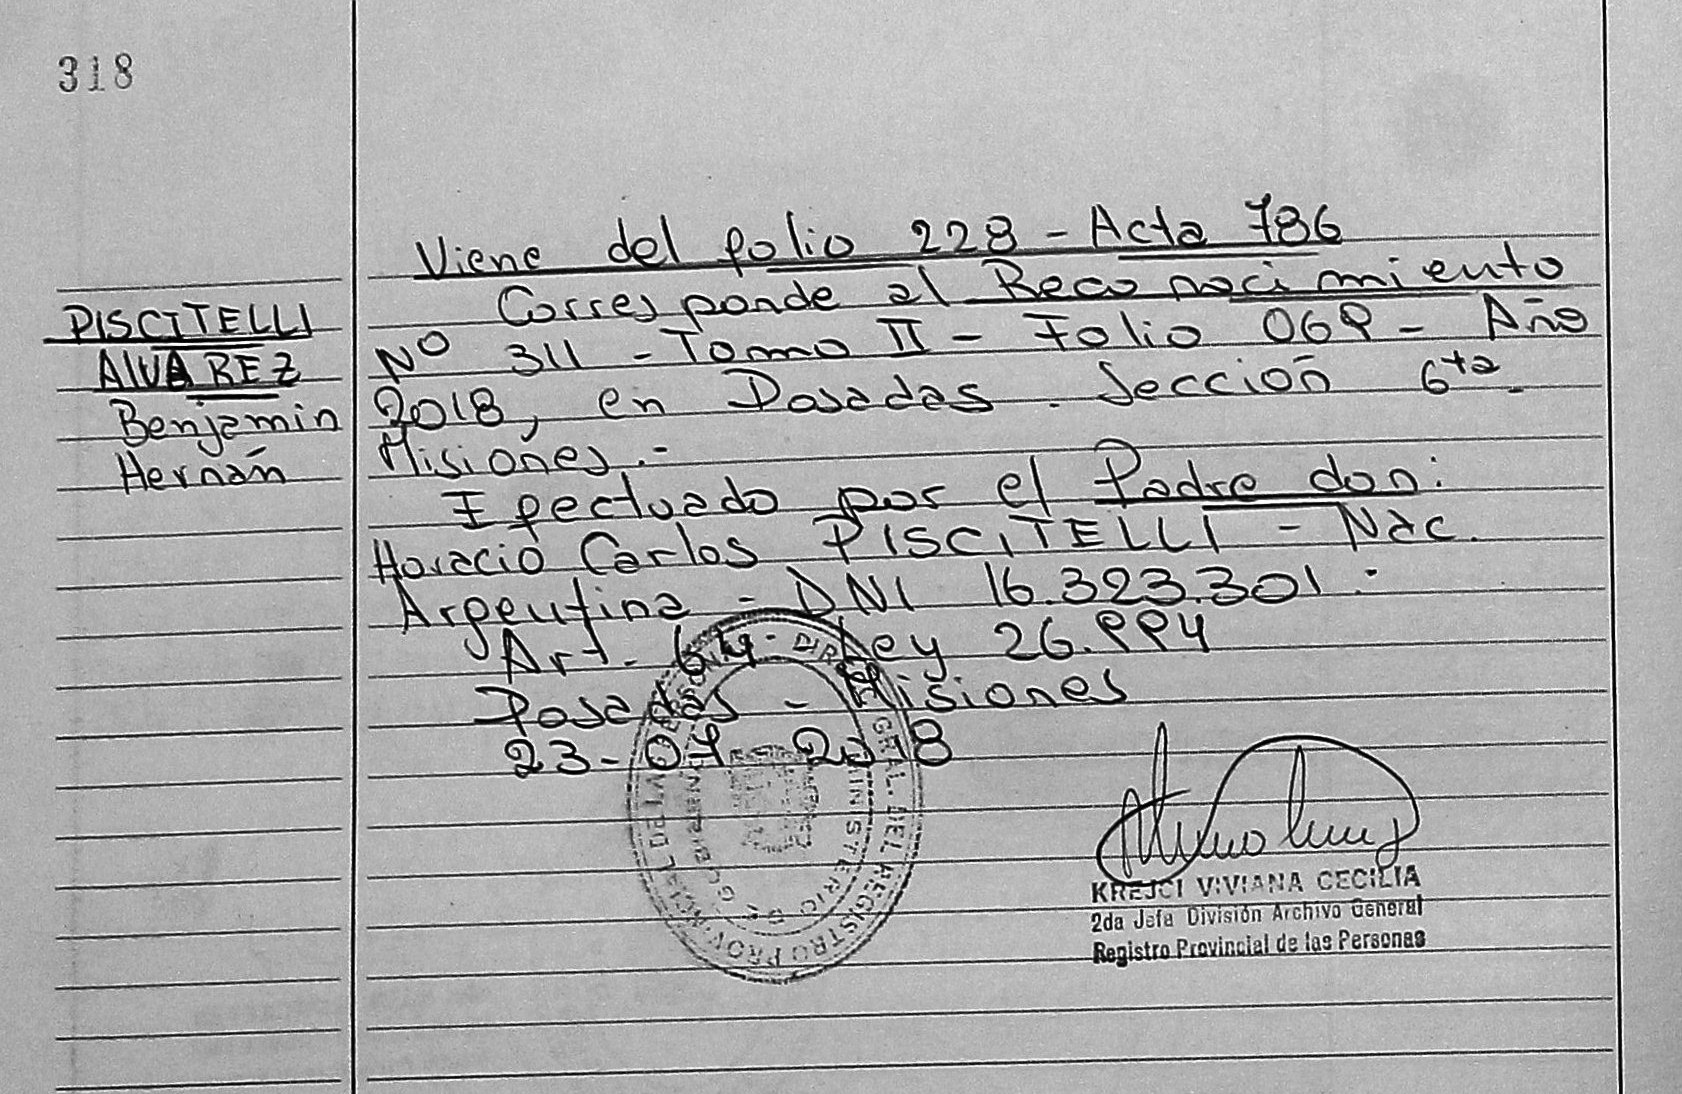 318
PISCITELLI
ALVAREZ
Benjamin
Hernán
Viene del folio 228 - Acta 786
Corresponde al Reconocimiento
Nº 311 - Tomo II - Folio 069 - Año
2018, en Posadas. Sección 6ta.
Misiones.-
Efectuado por el Padre don:
Horacio Carlos PISCITELLI - Nac.
Argentina - DNI 16.323.301.
Art. 64 - Ley 26.994
Posadas - Misiones
23-07-2018
DIR. GRAL. DEL REGISTRO PROVINCIAL DE LAS PERSONAS
MINISTERIO DE GOBIERNO
KREJCI VIVIANA CECILIA
2da Jefa División Archivo General
Registro Provincial de las Personas